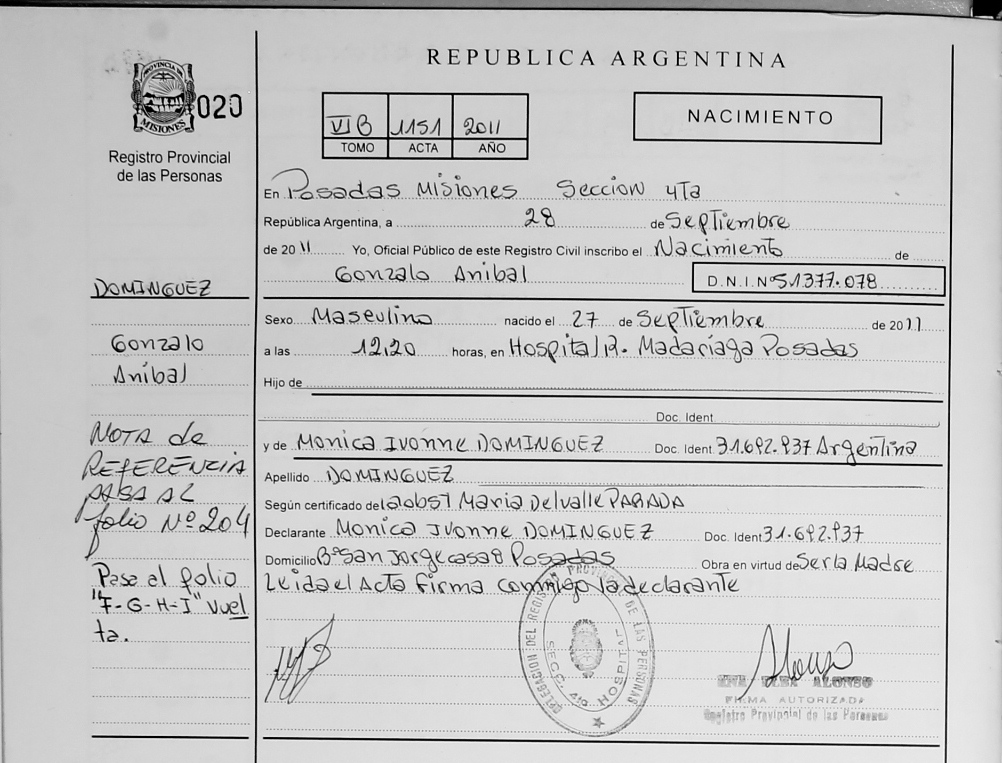 REPUBLICA ARGENTINA
PROVINCIA DE
MISIONES
020
Registro Provincial
de las Personas
VI B 1151 2011
TOMO ACTA AÑO
NACIMIENTO
En Posadas Misiones Seccion 4Ta
República Argentina, a 28 de Septiembre
de 2011 Yo, Oficial Público de este Registro Civil inscribo el Nacimiento de
Gonzalo Anibal D.N.I. Nº 51.377.078
Sexo Masculino nacido el 27 de Septiembre de 2011
a las 12,20 horas, en Hospital R. Madariaga Posadas
Hijo de
Doc. Ident.
y de Monica Ivonne DOMINGUEZ Doc. Ident. 31.692.937 Argentina
Apellido DOMINGUEZ
Según certificado de la obst Maria Delvalle PARADA
Declarante Monica Ivonne DOMINGUEZ Doc. Ident 31.692.937
Domicilio Bº San Jorge casa 8 Posadas Obra en virtud de Ser la Madre
Leida el Acta firma conmigo la declarante
DOMINGUEZ
Gonzalo
Anibal
NOTA de
REFERENCIA
PASA AL
folio Nº 204
Pase al folio
"F-G-H-I" vuel
ta.
DELEGACION DEL REGISTRO PROVINCIAL DE LAS PERSONAS
SECC. 4ta HOSPITAL
ALONSO
FIRMA AUTORIZADA
Registro Provincial de las Personas